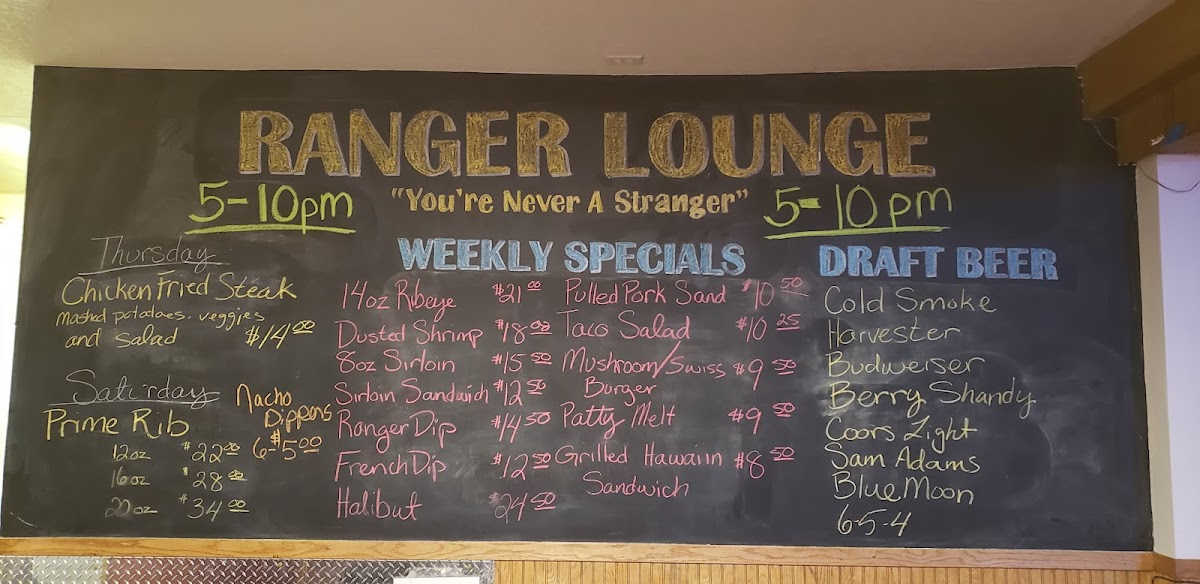 RANGER LOUNGE
5-10pm
"You're Never A Stranger"
5-10pm
Thursday
Chicken Fried Steak
mashed potatoes, veggies
and salad $14.00
Saturday
Prime Rib
12oz $22.00
16oz $28.00
20oz $34.00
Nacho
Dippers
6-$5.00
WEEKLY SPECIALS
14oz Ribeye $21.00
Dusted Shrimp $18.00
8oz Sirloin $15.50
Sirloin Sandwich $12.50
Ranger Dip $14.50
French Dip $12.50
Halibut $24.50
Pulled Pork Sand $10.50
Taco Salad $10.25
Mushroom/Swiss $9.50
Burger
Patty Melt $9.50
Grilled Hawaiin $8.50
Sandwich
DRAFT BEER
Cold Smoke
Harvester
Budweiser
Berry Shandy
Coors Light
Sam Adams
Blue Moon
6-5-4